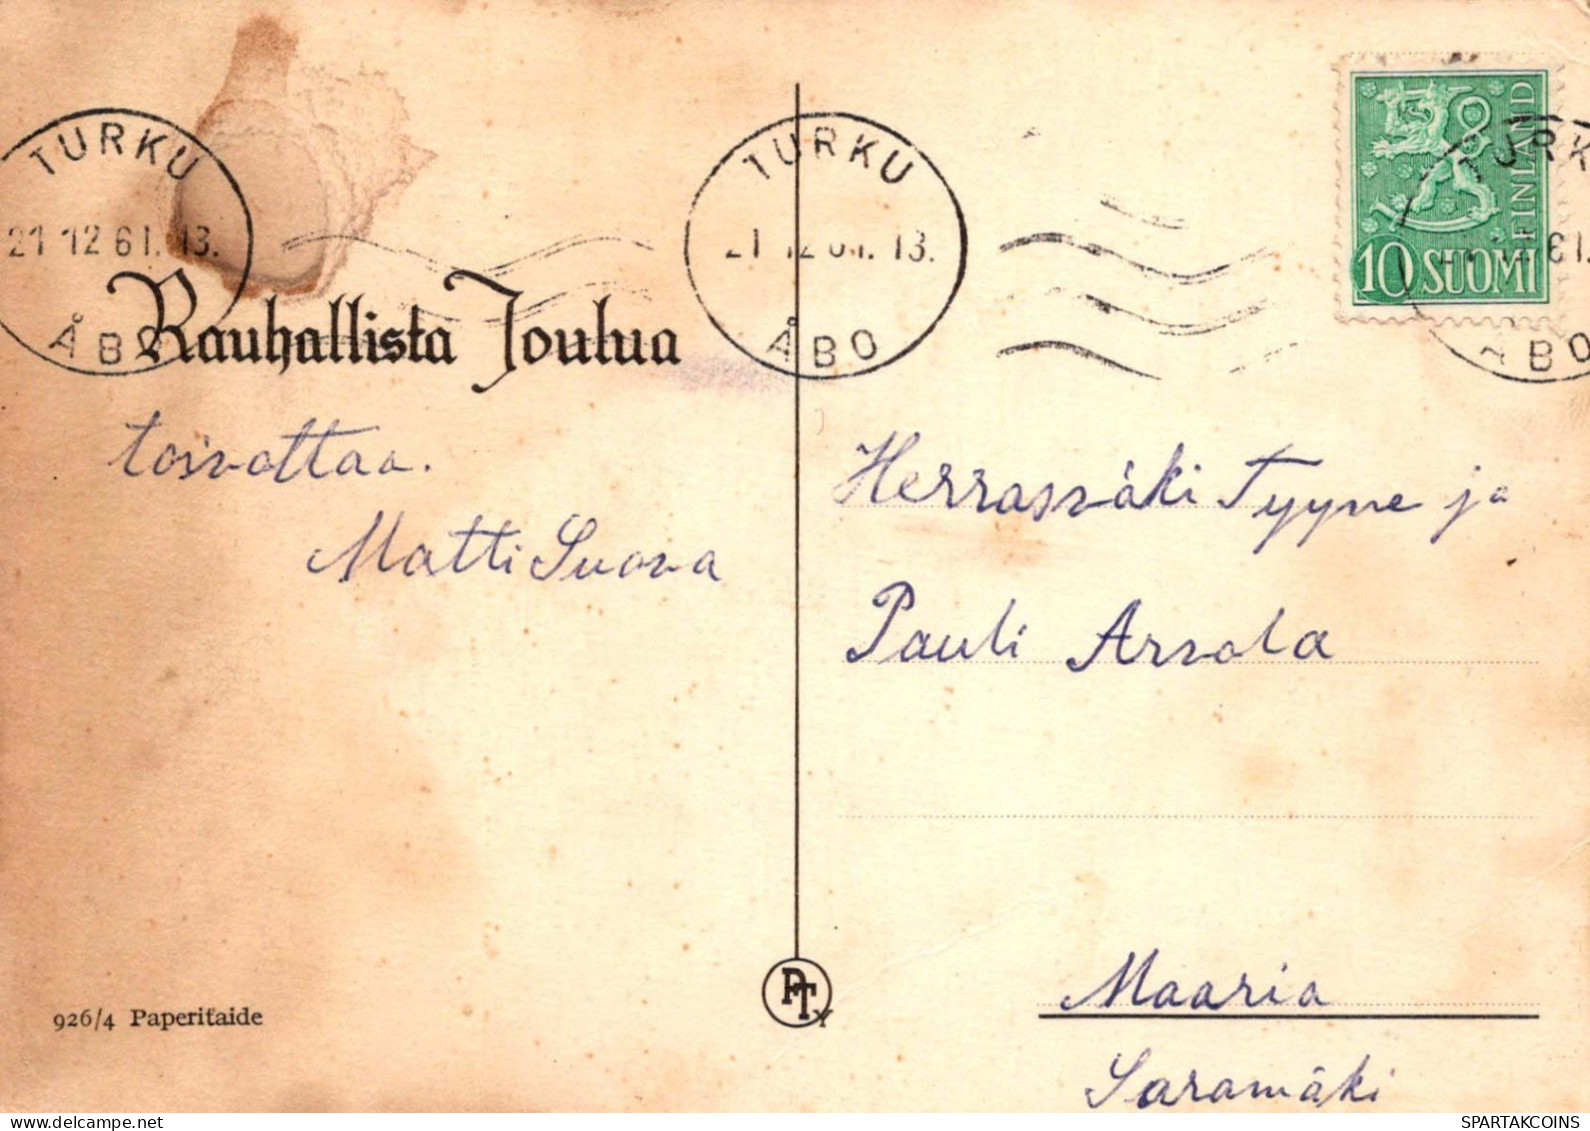 TURKU
21 12 61. 13.
ÅBO
TURKU
21 12 61. 13.
ÅBO
TURK
61.
ÅBO
FINLAND
10 SUOMI
Rauhallista Joulua
toivottaa.
Matti Suova
Herrasväki Tyyne ja
Pauli Arvola
Maaria
Saramäki
926/4 Paperitaide
PT
Y
www.delcampe.net
SPARTAKCOINS